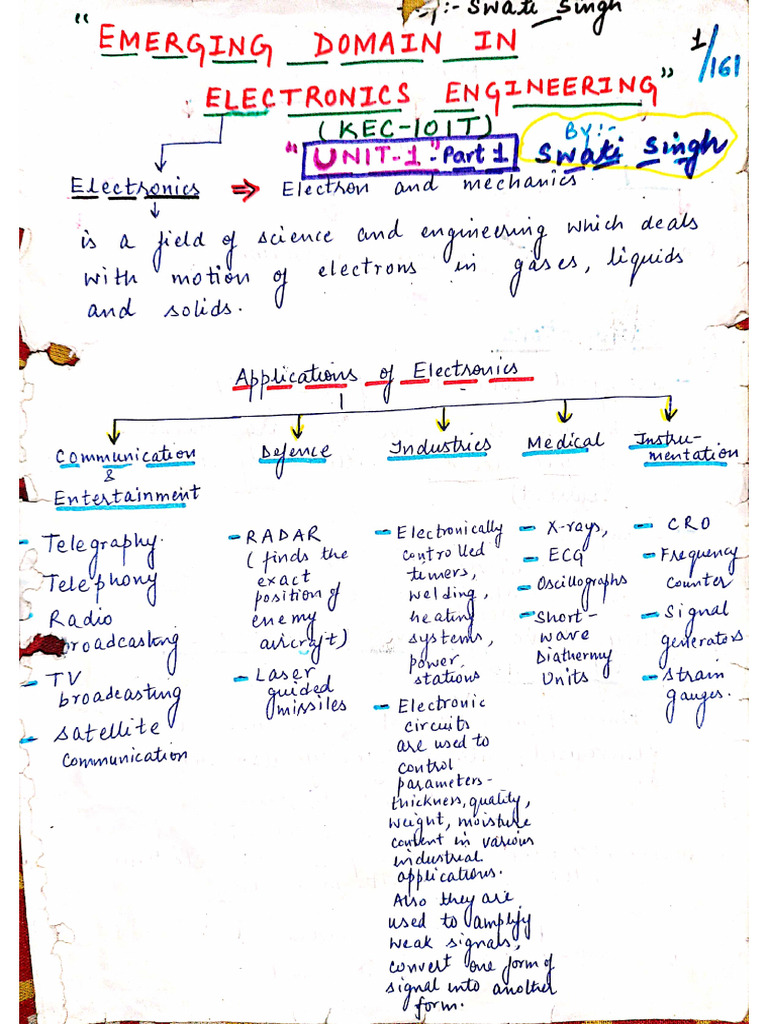 :- Swati Singh
"EMERGING DOMAIN IN
ELECTRONICS ENGINEERING"
1/161
(KEC-101T)
"UNIT-1"-Part 1
BY:-
Swati Singh
Electronics ⇒ Electron and mechanics.
is a field of science and engineering which deals
with motion of electrons in gases, liquids
and solids.
Applications of Electronics
Communication
&
Entertainment
- Telegraphy.
Telephony
- Radio
broadcasting
- TV
broadcasting
- Satellite
communication
Defence
- RADAR
(finds the
exact
position of
enemy
aircraft)
- Laser
guided
missiles
Industries
- Electronically
controlled
timers,
welding,
heating
systems,
power
stations
- Electronic
circuits
are used to
control
parameters-
thickness, quality,
weight, moisture
content in various
industrial
applications.
Also they are
used to amplify
weak signals,
convert one form of
signal into another
form.
Medical
- X-rays,
- ECG
- Oscillographs
- Short-
wave
Diathermy
Units
Instru-
mentation
- CRO
- Frequency
counter
- Signal
generators
- Strain
gauges.